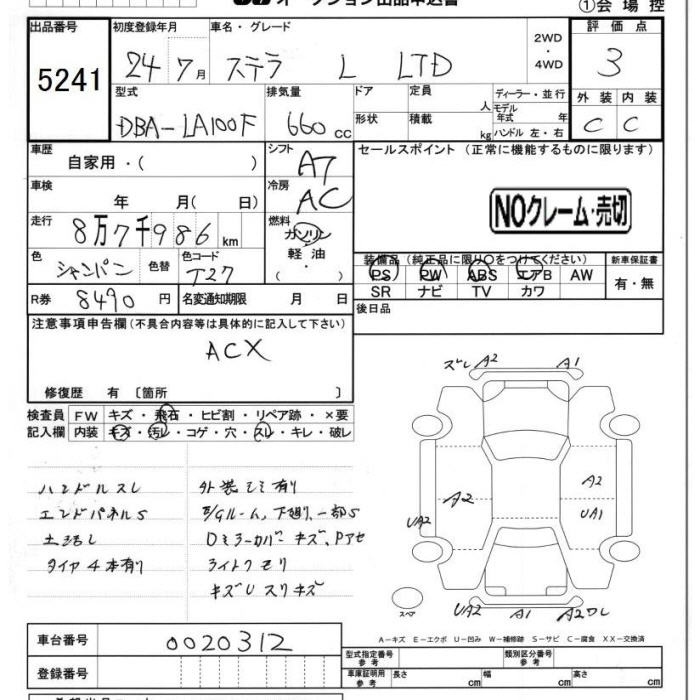 オークション出品申込書
①会場控
出品番号 初度登録年月 車名・グレード 2WD・4WD 評価点
5241 24 7月 ステラ L LTD 3
型式 排気量 ドア 定員 人 ディーラー・並行 外装 内装
DBA-LA100F 660 cc 形状 積載 kg モデル年式 年 ハンドル 左・右 C C
車歴 自家用・( ) シフト AT セールスポイント (正常に機能するものに限ります)
車検 年 月( 日) 冷房 AC
NOクレーム・売切
走行 8万7千986km 燃料 ガソリン
軽油・( )
色 シャンパン 色替 色コード T27
装備品 (純正品に限り○をつけてください) 新車保証書
PS PW ABS エアB AW 有・無
SR ナビ TV カワ
R券 8490円 名変通知期限 月 日 後日品
注意事項申告欄(不具合内容等は具体的に記入して下さい)
ACX
修復歴 有 〔箇所 〕
検査員 FW キズ・飛石・ヒビ割・リペア跡・×要
記入欄 内装 キズ・汚レ・コゲ・穴・スレ・キレ・破レ
ハンドルスレ 外装 有り
エンドパネルS E/Gルーム、下廻、一部S
土活し Dミラーカバーキズ、Pアセ
タイヤ4本有り ライトクモリ
キズUスリキズ
ズレ A2 A1
A2 A2
UA2 UA1
スペア UA2 A1 A2ワレ
A-キズ E-エクボ U-凹み W-補修跡 S-サビ C-腐食 XX-交換済
車台番号 0020312
登録番号
型式指定番号 参考 類別区分番号 参考
車庫証明用 参考 長さ cm 幅 cm 高さ cm